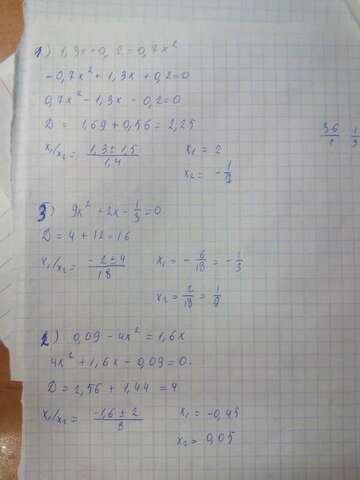 1) 1,3x + 0,2 = 0,7x²
-0,7x² + 1,3x + 0,2 = 0
0,7x² - 1,3x - 0,2 = 0
D = 1,69 + 0,56 = 2,25
x₁/x₂ = (1,3 ± 1,5)/1,4 x₁ = 2
x₂ = -1/7
3) 9x² + 2x - 1/3 = 0
D = 4 + 12 = 16
x₁/x₂ = (-2 ± 4)/18 x₁ = -6/18 = -1/3
x₂ = 2/18 = 1/9
2) 0,09 - 4x² = 1,6x
4x² + 1,6x - 0,09 = 0.
D = 2,56 + 1,44 = 4
x₁/x₂ = (-1,6 ± 2)/8 x₁ = -0,45
x₂ = 0,05